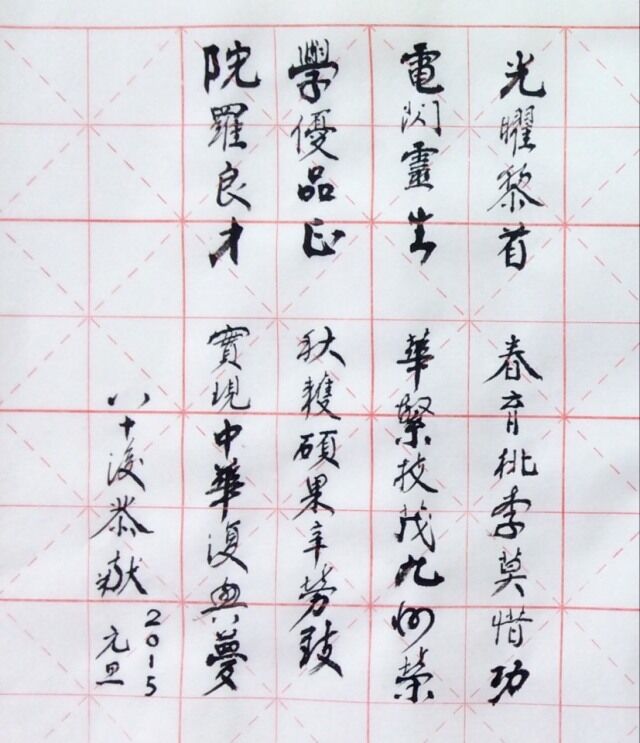 光曜黎首 春育桃李莫惜功
電閃靈生 華繁技茂九州榮
學優品正 秋穫碩果辛勞致
院羅良才 實現中華復興夢
八十後恭獻
2015
元旦